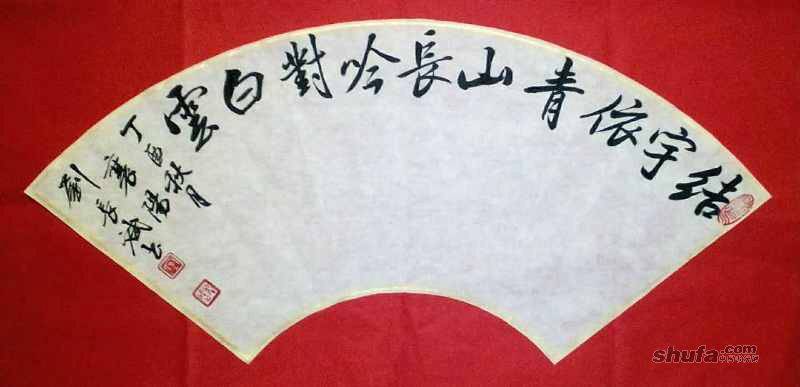 結宇依青山長吟對白雲
丁酉秋月
襄陽
劉長斌書
shufa.com